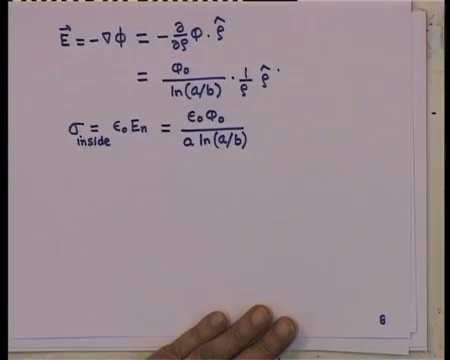 E⃗ = -∇ϕ = - ∂/∂ρ ϕ · ρ̂
= ϕ₀ / ln(a/b) · 1/ρ ρ̂
σ inside = ε₀ Eₙ = ε₀ϕ₀ / a ln(a/b)
8